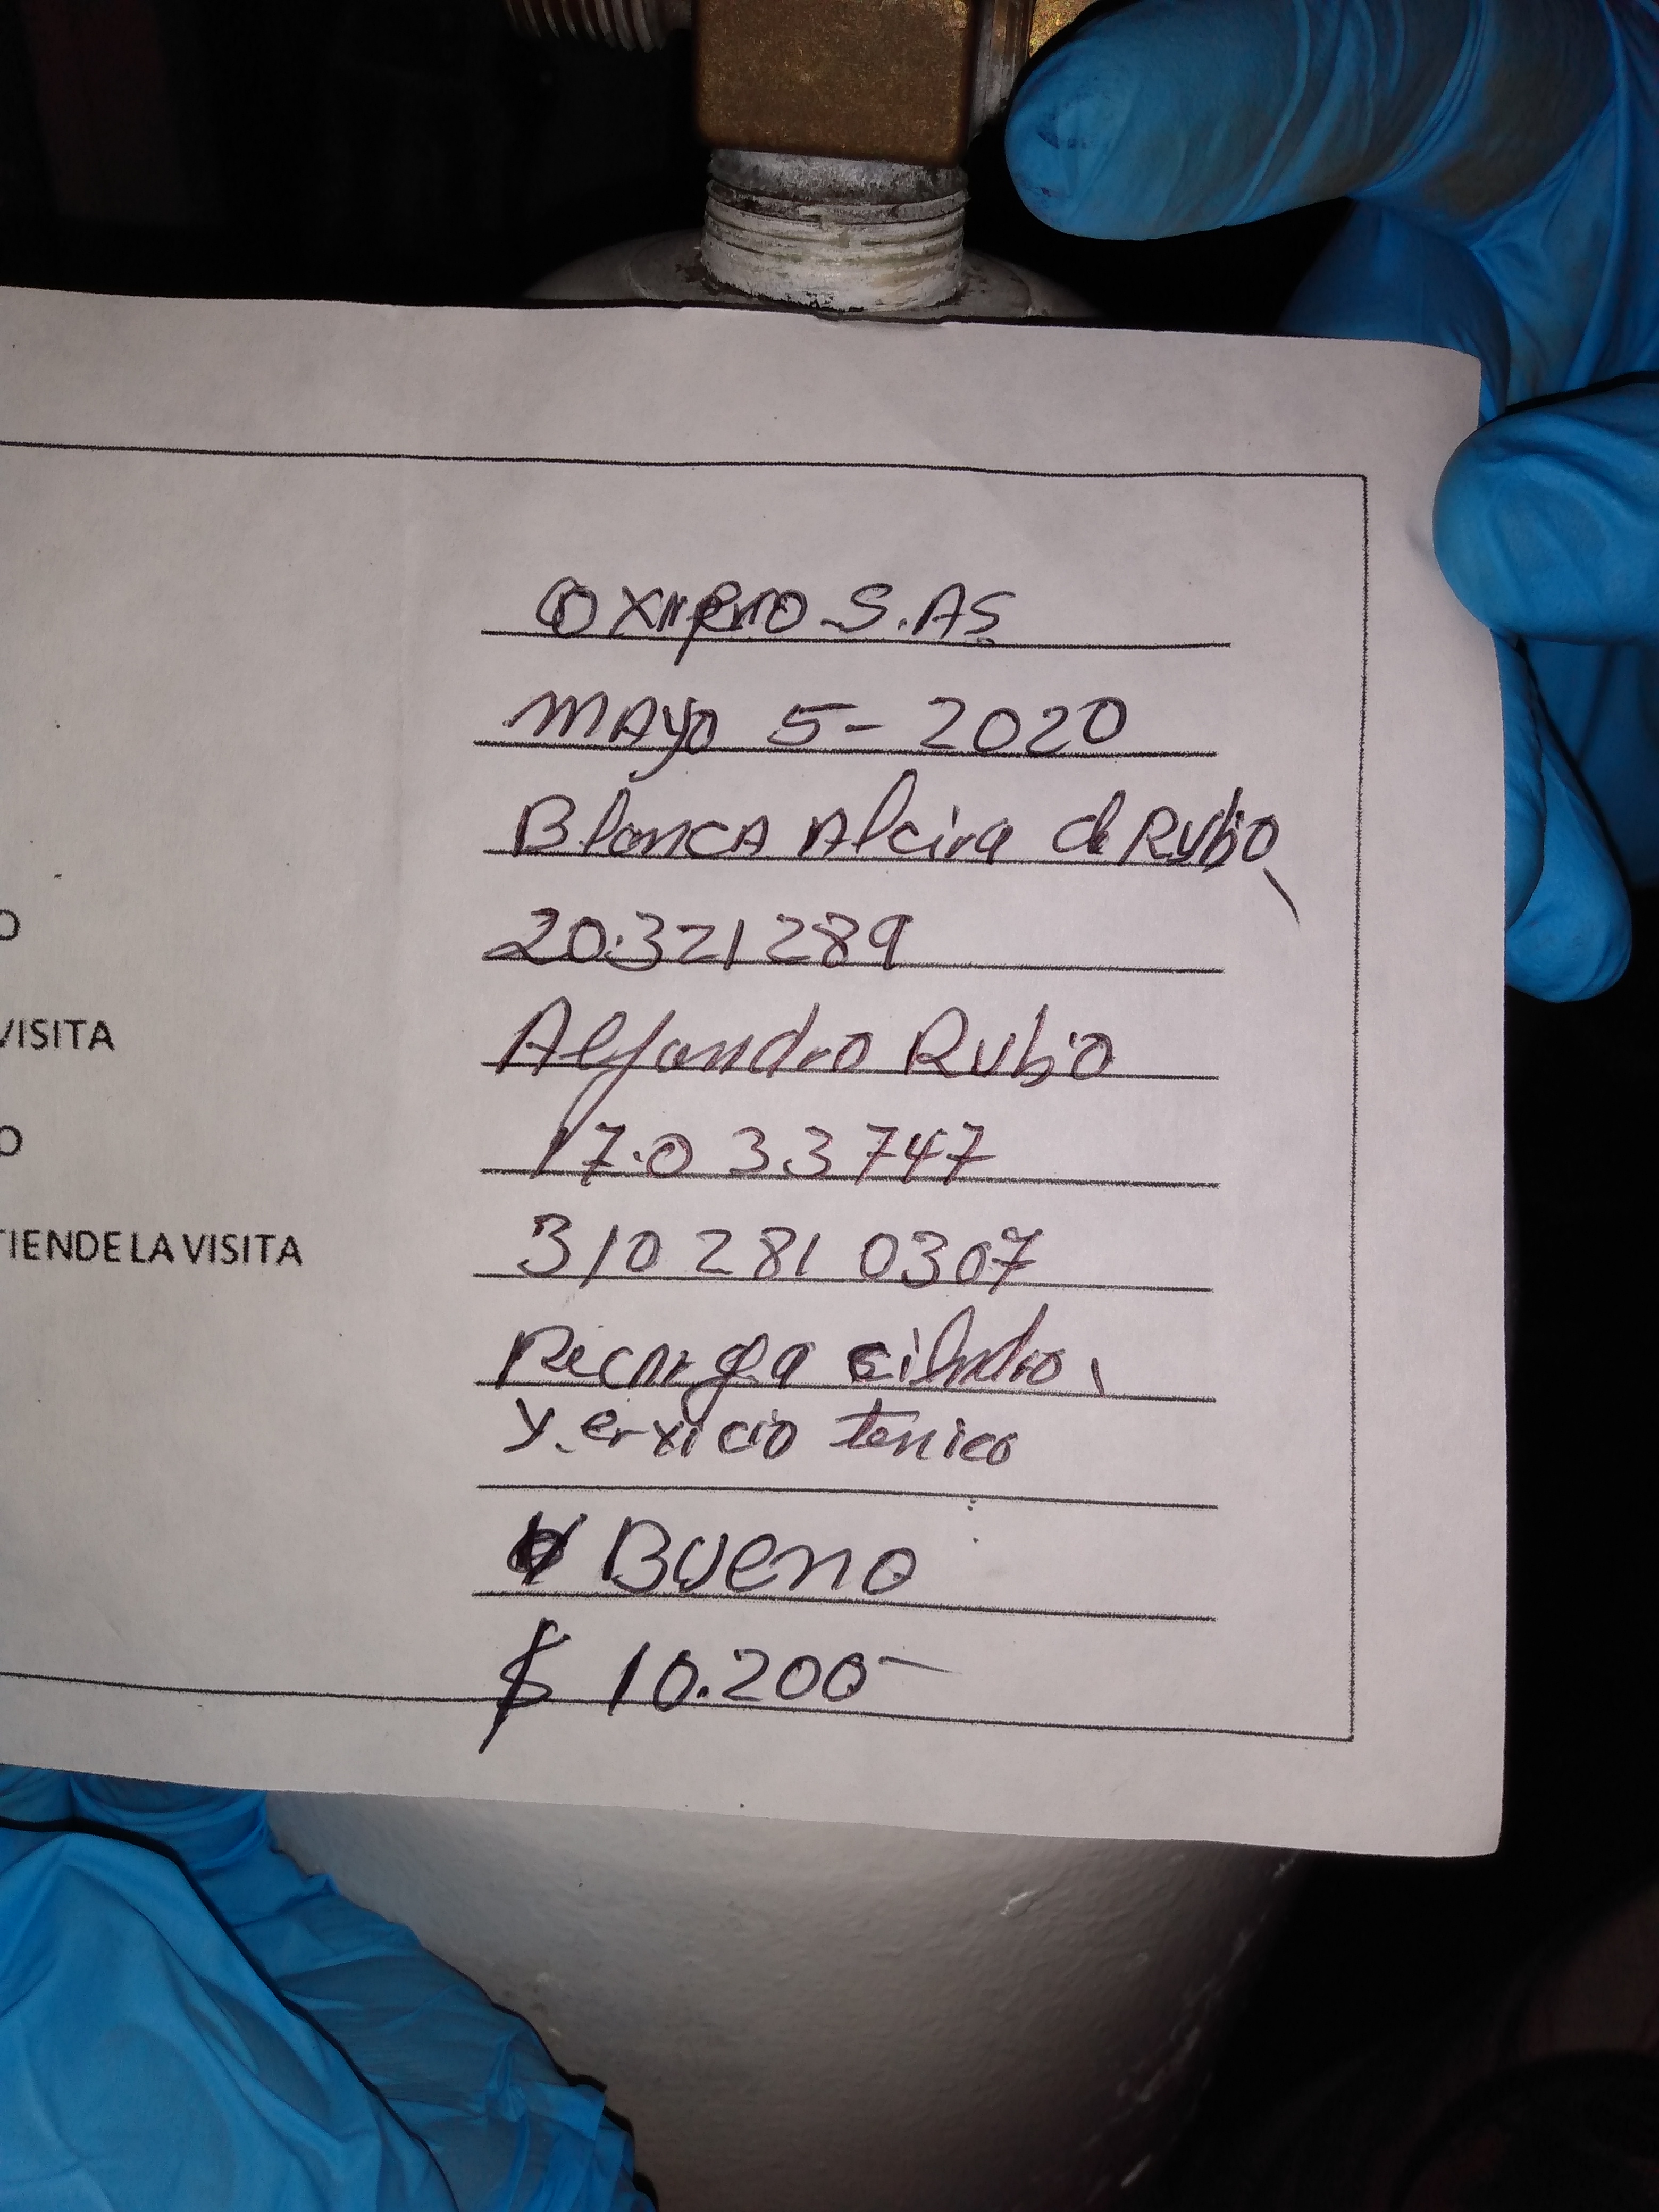 OXIPRO S.AS
MAYO 5-2020
BlancA Alcira de Rubio
O
20.321289
VISITA
Alejandro Rubio
O
17.033747
TIENDE LA VISITA
310 281 0307
Recarga cilindro
y. ervicio tenico
Bueno
$ 10.200-